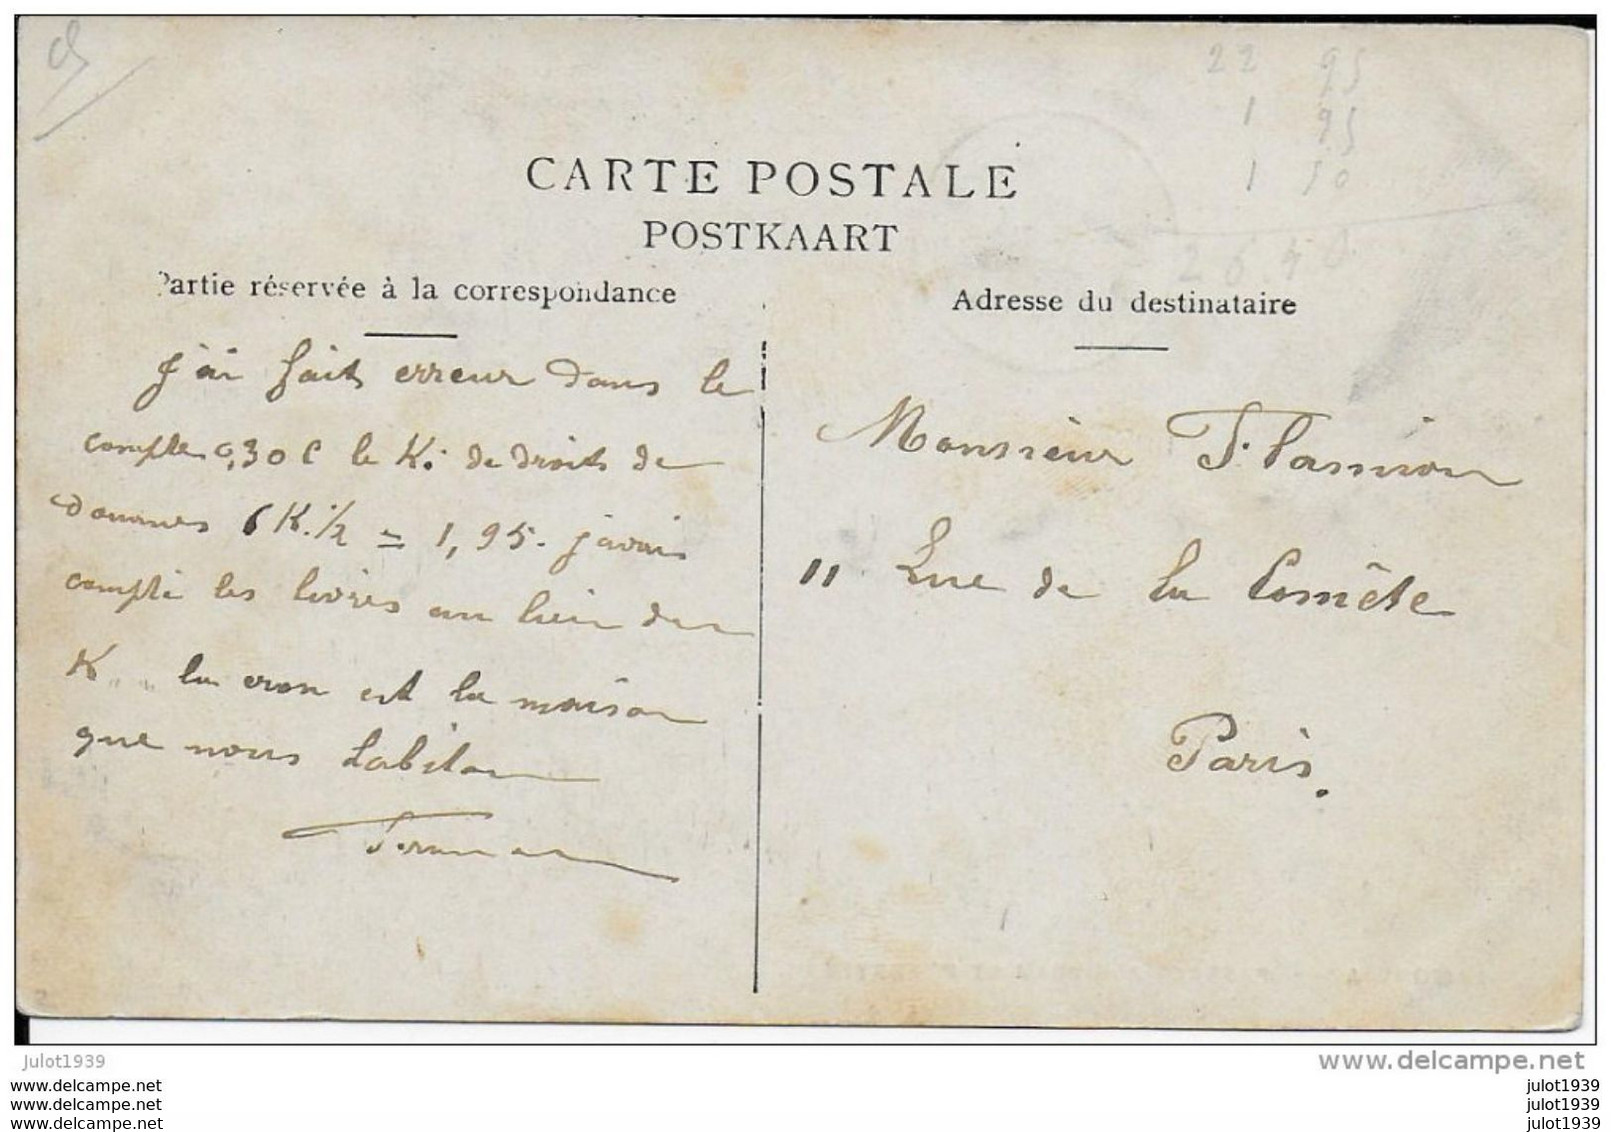 22 95
1 95
1 50
26.40
CARTE POSTALE
POSTKAART
Partie réservée à la correspondance
Adresse du destinataire
j'ai fait erreur dans le
compte 0,30 c le K. de droits de
douanes 6 K. 1/2 = 1,95. j'avais
compté les livres au lieu des
K. la croix est la maison
que nous habitons
Monsieur
11 Rue de la Comète
Paris.
julot1939
www.delcampe.net
www.delcampe.net
www.delcampe.net
www.delcampe.net
julot1939
julot1939
julot1939